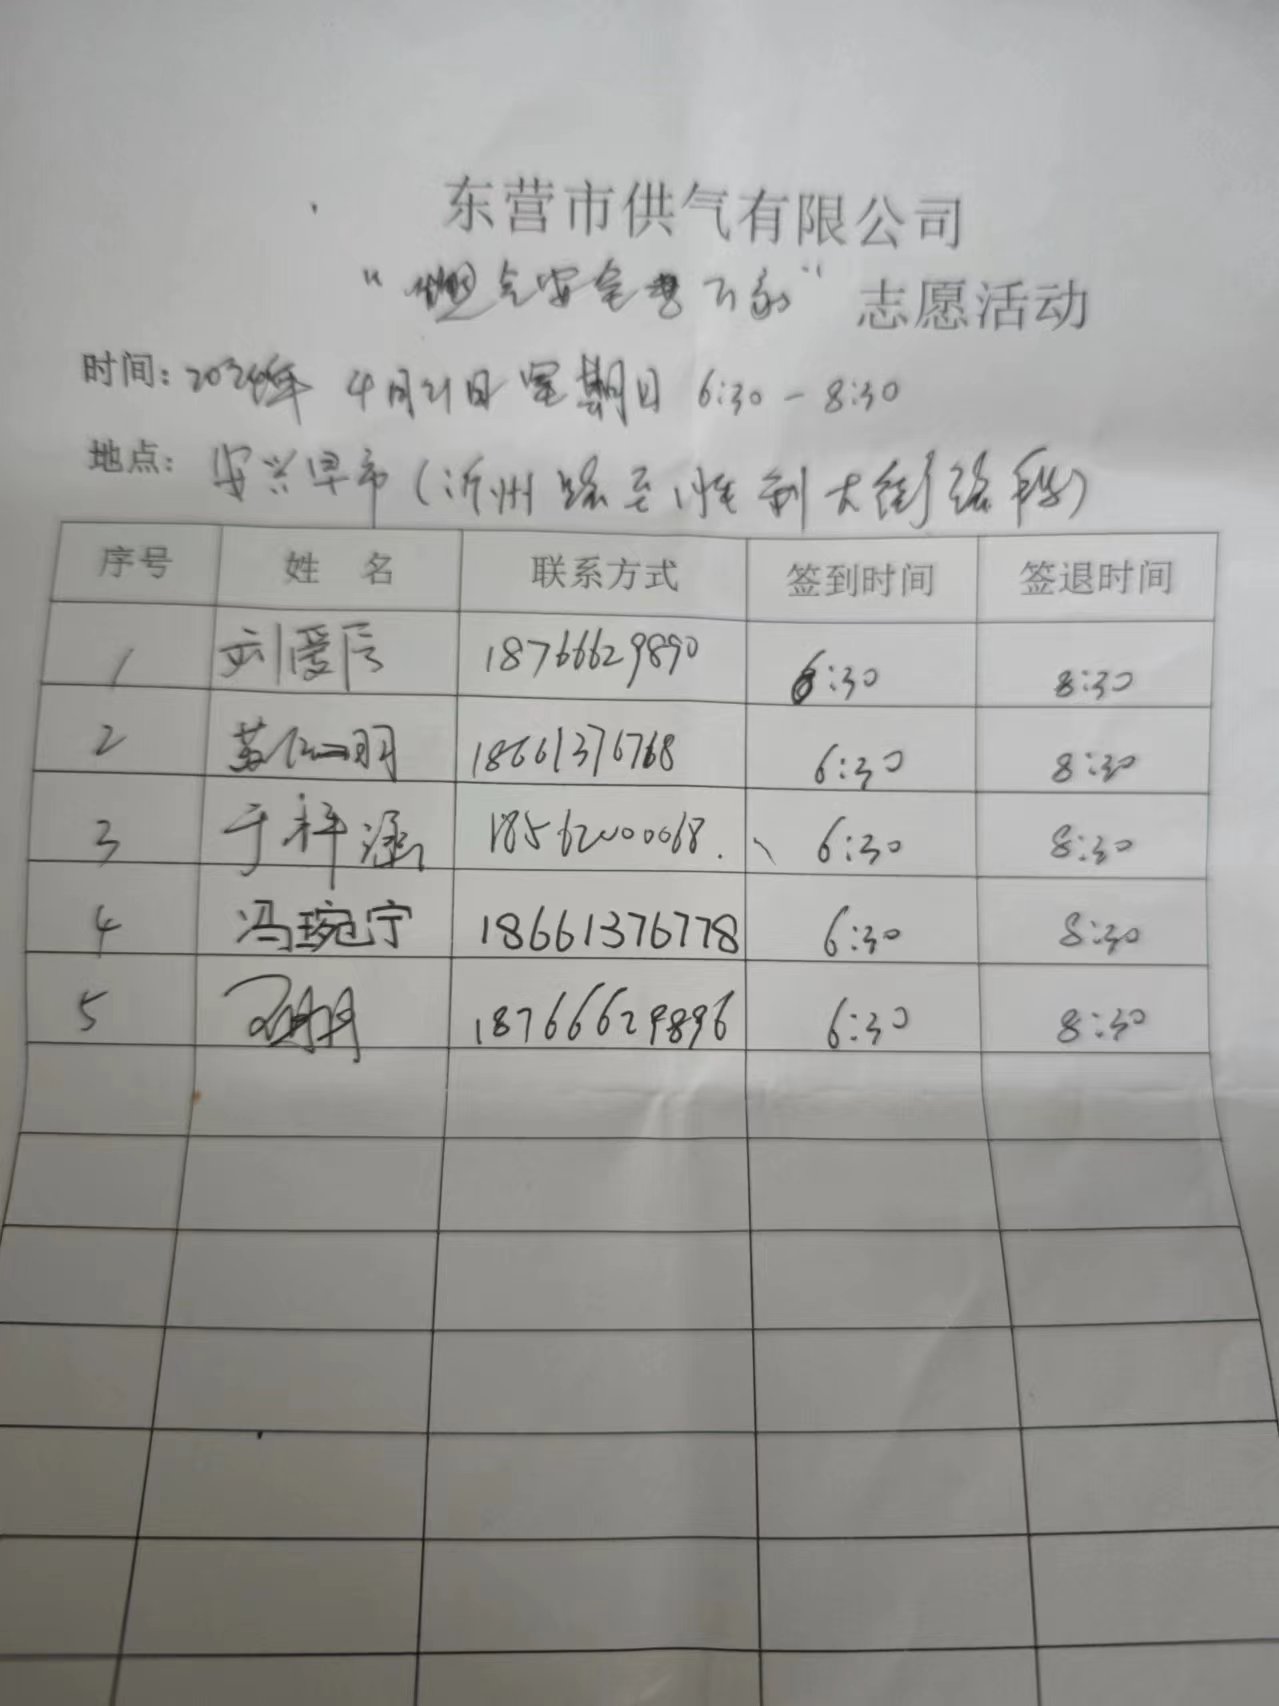 东营市供气有限公司
“燃气安全进万家”志愿活动
时间：2024年 4月21日 星期日 6:30－8:30
地点：安兴早市（沂州路至胜利大街路段）
序号 姓 名 联系方式 签到时间 签退时间
1 刘爱辰 18766629890 6:30 8:30
2 18661376768 6:30 8:30
3 于梓涵 18562000068. 6:30 8:30
4 冯琬宁 18661376778 6:30 8:30
5 18766629896 6:30 8:30